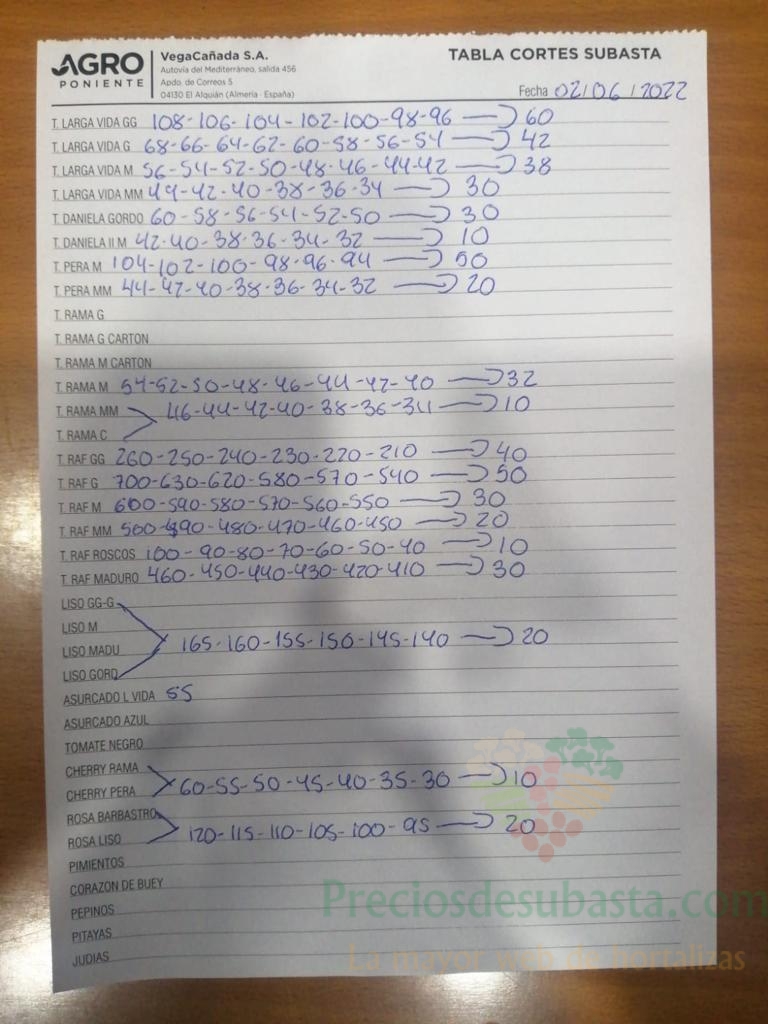 AGRO
PONIENTE
VegaCañada S.A.
Autovía del Mediterráneo, salida 456
Apdo. de Correos 5
04130 El Alquián (Almería - España)
TABLA CORTES SUBASTA
Fecha 02/06/2022
T. LARGA VIDA GG 108-106-104-102-100-98-96 → 60
T. LARGA VIDA G 68-66-64-62-60-58-56-54 → 42
T. LARGA VIDA M 56-54-52-50-48-46-44-42 → 38
T. LARGA VIDA MM 44-42-40-38-36-34 → 30
T. DANIELA GORDO 60-58-56-54-52-50 → 30
T. DANIELA II M 42-40-38-36-34-32 → 10
T. PERA M 104-102-100-98-96-94 → 50
T. PERA MM 44-42-40-38-36-34-32 → 20
T. RAMA G
T. RAMA G CARTON
T. RAMA M CARTON
T. RAMA M 54-52-50-48-46-44-42-40 → 32
T. RAMA MM 46-44-42-40-38-36-34 → 10
T. RAMA C
T. RAF GG 260-250-240-230-220-210 → 40
T. RAF G 700-630-620-580-570-540 → 50
T. RAF M 600-590-580-570-560-550 → 30
T. RAF MM 500-490-480-470-460-450 → 20
T. RAF ROSCOS 100-90-80-70-60-50-40 → 10
T. RAF MADURO 460-450-440-430-420-410 → 30
LISO GG-G
LISO M
LISO MADU 165-160-155-150-145-140 → 20
LISO GORD
ASURCADO L VIDA 55
ASURCADO AZUL
TOMATE NEGRO
CHERRY RAMA
CHERRY PERA 60-55-50-45-40-35-30 → 10
ROSA BARBASTRO
ROSA LISO 120-115-110-105-100-95 → 20
PIMIENTOS
CORAZON DE BUEY
PEPINOS
PITAYAS
JUDIAS
Preciosdesubasta.com
La mayor web de hortalizas